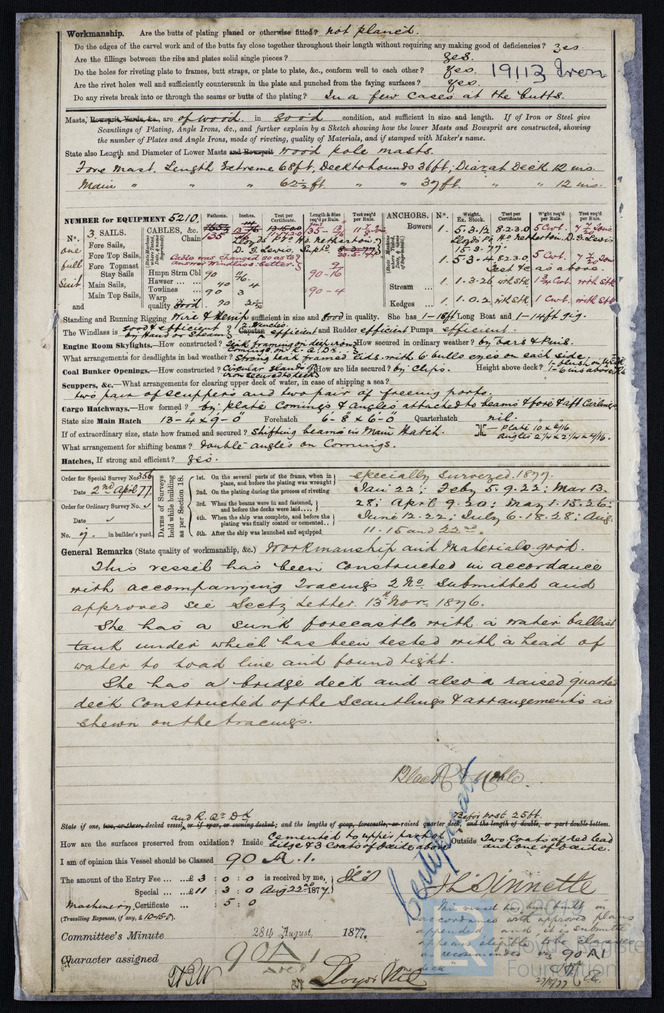 Workmanship. Are the butts of plating planed or otherwise fitted? not planed.
Do the edges of the carvel work and of the butts fay close together throughout their length without requiring any making good of deficiencies? yes
Are the fillings between the ribs and plates solid single pieces? yes.
Do the holes for riveting plate to frames, butt straps, or plate to plate, &c., conform well to each other? yes. 19113 Iron
Are the rivet holes well and sufficiently countersunk in the plate and punched from the faying surfaces? yes.
Do any rivets break into or through the seams or butts of the plating? In a few cases at the butts.
Masts, Bowsprit, Yards, &c., are of wood. in good condition, and sufficient in size and length. If of Iron or Steel give
Scantlings of Plating, Angle Irons, &c., and further explain by a Sketch showing how the lower Masts and Bowsprit are constructed, showing
the number of Plates and Angle Irons, mode of riveting, quality of Materials, and if stamped with Maker's name.
State also Length and Diameter of Lower Masts and Bowsprit Wood pole masts.
Fore mast. Length Extreme 68ft, Deck to hounds 36ft; Diar. at Deck 12 ins.
Main " " " 62½ft " " 37ft " " " 12 ins.
NUMBER for EQUIPMENT 5210.
N°. SAILS. CABLES, &c. Fathoms. Inches. Test per Certificate. Length & Size req'd per Rule. Test req'd per Rule. ANCHORS. N°. Weight. Ex. Stock. Test per Certificate W'ght req'd per Rule. Test req'd per Rule.
3. Fore Sails, Chain 135 Bowers 1. 5.3.12 8.2.3.0 5 Cwt.
one Fore Top Sails, Lloyds Netherton D. G. Lewis
full Fore Topmast Stay Sails Hmpn Strm Cbl 90 90-16 1. 5.3.4 8.2.3.0 5 Cwt.
Suit Main Sails, Hawser 40 4 Test &c as above.
Main Top Sails, Towlines 90 3 90-4 Stream 1. 1.3.26
and Warp 90 2½ Kedges 1. 1.0.2 1 Cwt
quality Good.
Standing and Running Rigging Wire & Hemp sufficient in size and Good in quality. She has 1-15ft Long Boat and 1-14ft gig.
The Windlass is good & efficient Capstan 2 Winches efficient and Rudder efficient Pumps efficient.
Engine Room Skylights.—How constructed? How secured in ordinary weather? by bars & pins.
What arrangements for deadlights in bad weather? Strong teak framed lids with 6 bulls eyes on each side
Coal Bunker Openings.—How constructed? Circular How are lids secured? by Clips. Height above deck?
Scuppers, &c.—What arrangements for clearing upper deck of water, in case of shipping a sea?
two pair of scuppers and two pair of freeing ports.
Cargo Hatchways.—How formed? by plate Comings & angles attached to beams & fore & aft Carlings
State size Main Hatch 13-4 x 9-0 Forehatch 6-8 x 6-0 Quarterhatch nil.
If of extraordinary size, state how framed and secured? Shifting beams in Main Hatch. plate 10 x 6/16 angles 2¼ x 2¼ x 4/16.
What arrangement for shifting beams? double angles on Comings.
Hatches, If strong and efficient? yes.
Order for Special Survey No. 356
Date 2nd April 77
Order for Ordinary Survey No.
Date "
No. 7. in builder's yard.
DATES of Surveys held while building as per Section 18.
1st. On the several parts of the frame, when in place, and before the plating was wrought
2nd. On the plating during the process of riveting
3rd. When the beams were in and fastened, and before the decks were laid
4th. When the ship was complete, and before the plating was finally coated or cemented
5th. After the ship was launched and equipped
Specially surveyed. 1877.
Jan 22; Feby 5. 9. 22; Mar 13.
28; April 9. 20; May 1. 15. 26;
June 12. 22; July 6. 18. 28; Aug.
11. 15 and 22nd.
General Remarks (State quality of workmanship, &c.) Workmanship and Materials good.
This vessel has been Constructed in accordance
with accompanying tracings 2 No. Submitted and
approved see Secty Letter 13th Nov. 1876.
She has a sunk forecastle with a water ballast
tank under which has been tested with a head of
water to load line and found tight.
She has a bridge deck and also a raised quarter
deck Constructed of the Scantlings & arrangements as
shewn on the tracings.
Black & Noble.
and R. Qr Dk
State if one, two, or three, decked vessel, or if spar, or awning decked; and the lengths of poop, forecastle, or raised quarter deck, and the length of double, or part double bottom.
How are the surfaces preserved from oxidation? Inside Cemented to upper part of bilge & 3 Coats of paint above Outside Two Coats of red lead and one of
I am of opinion this Vessel should be Classed 90 A. 1.
The amount of the Entry Fee £ 3 : 0 : 0 is received by me,
Special £ 11 : 3 : 0 Aug 22nd 1877.
Machinery, Certificate : 5 : 0
(Travelling Expenses, if any, £
This vessel has been built in
accordance with approved plans
appended and it is submitted
appears eligible to be classed
as recommended 90 A1
Committee's Minute 28th August, 1877.
Character assigned 90 A 1
Lloyd's Register
Foundation